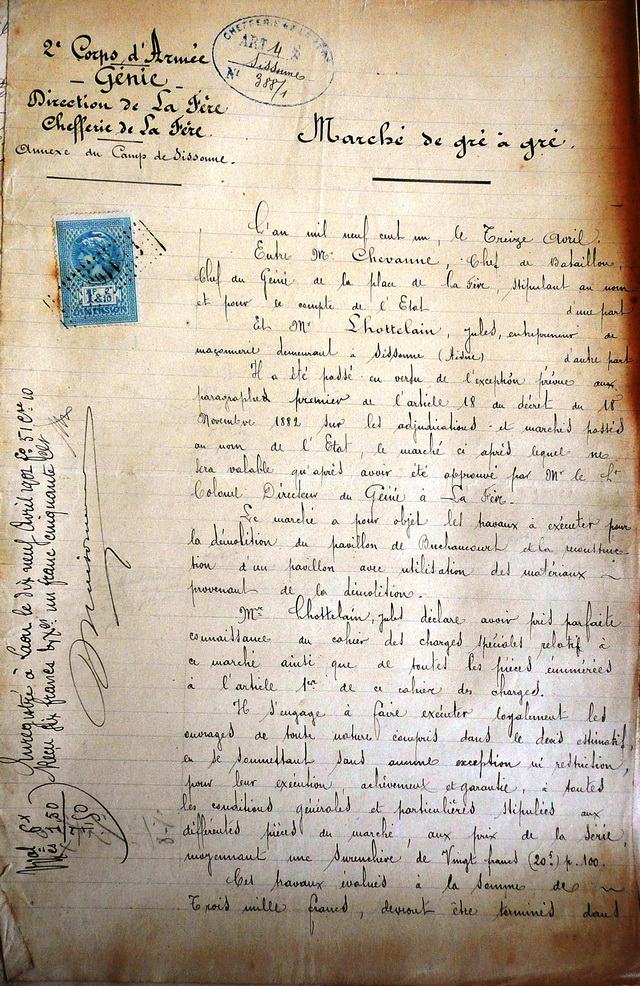 2e Corps d'Armée
Génie
Direction de La Fère
Chefferie de La Fère
Annexe du Camp de Sissonne.
CHEFFERIE DE LA FÈRE
ART 4
Sissonne
N° 388/1
Marché de gré à gré.
DIMENSION
L'an mil neuf cent un, le Treize Avril.
Entre Mr Chevanne, Chef de Bataillon,
Chef du Génie de la place de La Fère, stipulant au nom
et pour le compte de l'Etat d'une part
Et Mr Lhottelain, Jules, entrepreneur de
maçonnerie demeurant à Sissonne (Aisne) d'autre part
Il a été passé en vertu de l'exception prévue aux
paragraphes premier de l'article 18 du décret du 18
Novembre 1882 sur les adjudications et marchés passés
au nom de l'Etat, le marché ci après lequel ne
sera valable qu'après avoir été approuvé par Mr le Lt
Colonel Directeur du Génie à La Fère.
Le marché a pour objet les travaux à exécuter pour
la démolition du pavillon de Buchaucourt et la reconstruc-
tion d'un pavillon avec utilisation des matériaux
provenant de la démolition.
Mr Lhottelain, Jules déclare avoir pris parfaite
connaissance du cahier des charges spéciales relatif à
ce marché ainsi que de toutes les pièces énumérées
à l'article 1er de ce cahier des charges.
Il s'engage à faire exécuter loyalement les
ouvrages de toute nature compris dans le devis estimatif,
en se soumettant sans aucune exception ni restriction,
pour leur exécution achèvement et garantie, à toutes
les conditions générales et particulières stipulées aux
différentes pièces du marché, aux prix de la série,
moyennant une surenchère de Vingt francs (20f) p. 100.
Ces travaux évalués à la somme de
Trois mille francs, devront être terminés dans
Enregistré à Laon le dix neuf Avril 1901 Fo 51 Cse 10
Reçu six francs Dxes un franc cinquante cent